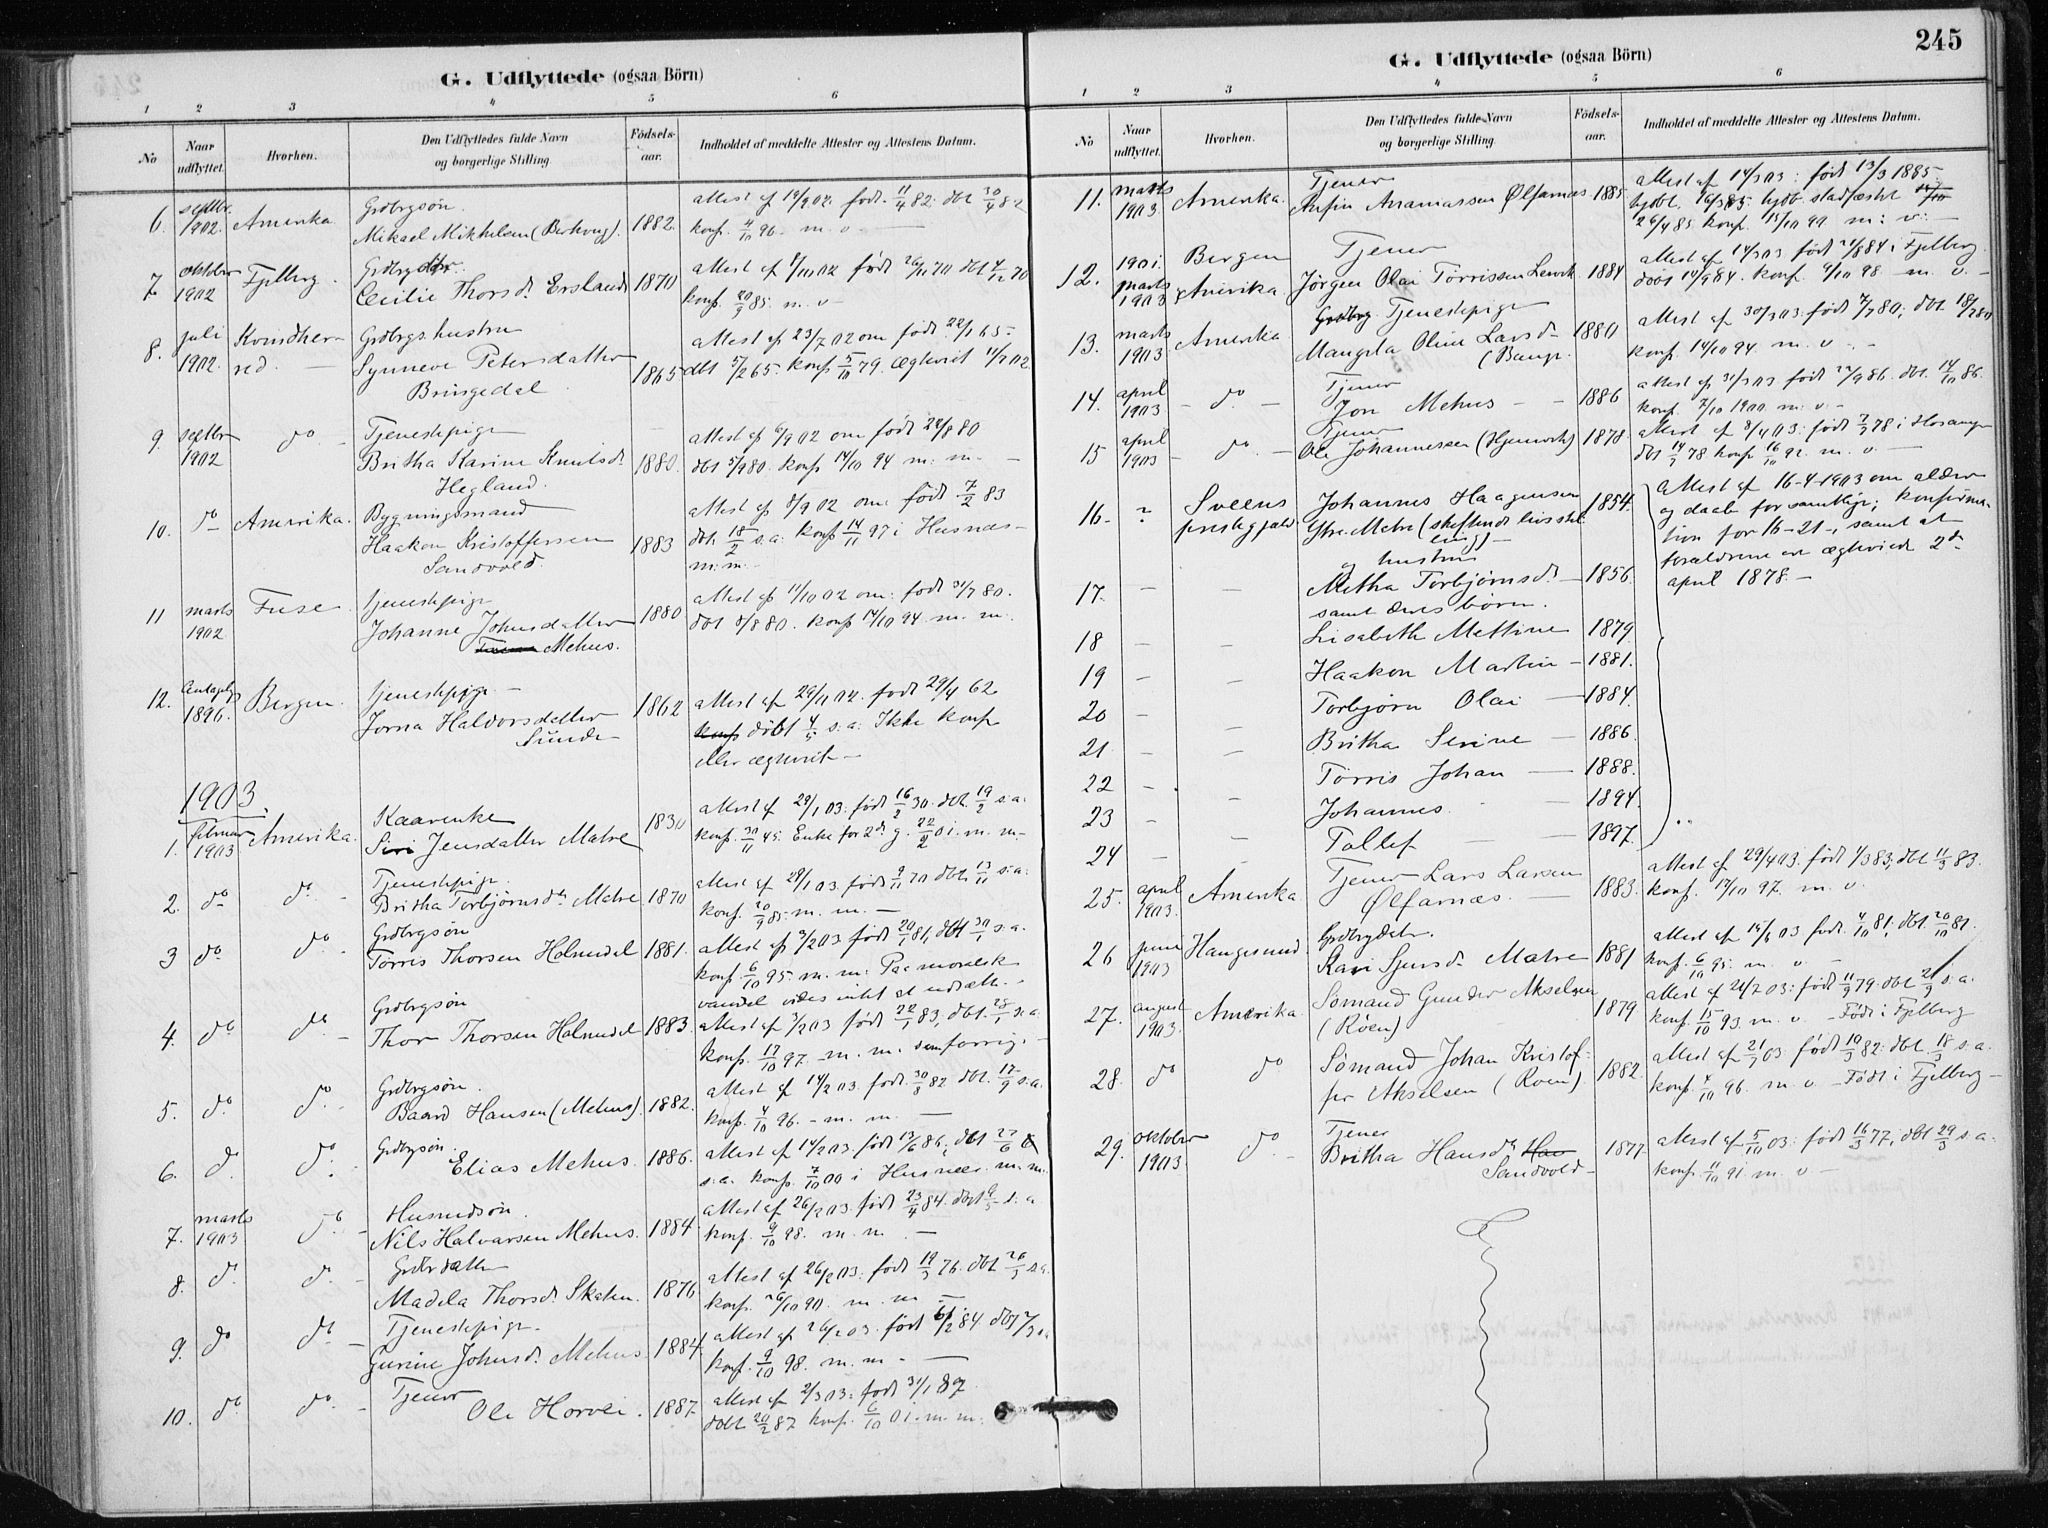 G. Udflyttede (ogsaa Börn)
1 2 3 4 5 6
No
Naar udflyttet.
Hvorhen.
Den Udflyttedes fulde Navn og borgerlige Stilling.
Födsels-aar.
Indholdet af meddelte Attester og Attestens Datum.
6. septbr. 1902. Amerika Grdbrgsøn. Mikael Mikkelsen 1882. attest af 19/9 02. født 11/4 82. dbt 30/4 82
konf. 4/10 96. m. v.
7. oktober 1902 Fjelberg. Grdbrgdtr. Cecilie Thorsd. Ersland 1870
konf. 20/9 85. m. v.
8. juli 1902. Kvindherred. Grdbrgs hustru Synneve Petersdatter Bringedal 1865 attest af 23/7 02 om født 22/1 65.
dbt 5/2 65. konf 5/10 79. ægteviet 11/7 02.
9. septbr 1902 do Tjenestepige Britha Karine Knutsd. Hegland. 1880. attest af 6/9 02 om født 22/8 80
dbt 5/9 80. konf 14/10 94 m. m.
10. do Amerika. Bygningsmand Haakon Kristoffersen Sandvold. 1883 attest af 8/9 02 om født 7/2 83
dbt. 18/2 s.a. konf 14/11 97 i Husnæs
m. m.
11 marts 1902 Fuse. tjenestepige Johanne Johnsdatter Mehus. 1880 attest af 11/10 02 om: født 31/7 80.
dbt 8/8 80. konf 14/10 94. m. m.
12. 1896. Bergen. tjenestepige Jorna Halvorsdatter Sunde 1862 attest af 29/11 02. født 29/4 62
konf døbt 4/5 s.a. Ikke konf
eller ægteviet
1903.
1. februar 1903 Amerika. Kaarenke Siri Jensdatter Matre 1830 attest af 29/1 03: født 16/2 30. dbt. 19/2 s.a.
konf. 30/11 45. Enke for 2d g. 22/2 01. m. m.
2. do do Tjenestepige. Britha Torbjørnsdr. Matre 1870 attest af 29/1 03. født 9/11 70 dbt. 13/11 s.a.
konf. 20/9 85. m. m.
3 do do Grdbrgsøn Tørris Thorsen Holmedal 1881. attest af 3/2 03. født 20/1 81, dbt 30/1 s.a.
konf. 6/10 95. m. m. Paa moralsk
vandel vides intet at udsætte.
4. do do Grdbrgsøn Thor Thorsen Holmedal 1883. attest af 3/2 03 født 22/1 83, dbt. 28/1 s.a.
konf. 17/10 97. m. m. som forrige
5. do do Grdbrgsøn. Baard Hansen (Mehus). 1882. attest af 14/2 03. født 30/8 82 dbt. 17/9 s.a.
konf. 4/10 96. m. m.
6. do do Grdbrgsøn. Elias Mehus. 1886. attest af 14/2 03. født 13/6 86; dbt 27/6
s.a. konf. 7/10 00 i Husnæs. m. m.
7. marts 1903 do Husmdsøn. Nils Halvarsen Mehus. 1884. attest af 26/2 03. født 23/4 84. dbt s.a
konf. 9/10 98. m. m
8. do do Grdbrdatter Madela Thorsd. Skaten. 1876 attest af 26/2 03: født 19/3 76. dbt 26/3 s.a.
konf. 26/10 90. m. m
9. do do Tjenestepige. Gurine Johnsd. Mehus. 1884. attest af 26/2 03. født 84. dbt 2/3 s.a
konf. 9/10 98. m. m
10. do do Tjener Ole Horvei. 1887. attest af 2/3 03: født 31/1 87
døbt 20/2 87 konf. 6/10 01. m. m.
245
G. Udflyttede (ogsaa Börn)
1 2 3 4 5 6
No
Naar udflyttet.
Hvorhen.
Den Udflyttedes fulde Navn og borgerlige Stilling.
Födsels-aar.
Indholdet af meddelte Attester og Attestens Datum.
11. marts 1903. Amerika. Tjener Anfin Ølfarnæs 1885 attest af 14/3 03: født 13/3 1885.
hjdbt. 16/3 85. hjdb. stadfæstet
26/4 85. konf. 15/10 99. m: v:
12. 1901. Bergen marts 1903 Amerika. Tjener Jørgen Olai Tørrissen 1884 attest af 14/3 03 født 21/8 84 i Fjelberg.
døbt 14/9 84. konf. 9/10 98. m. v.
13. marts 1903. Amerika Grdbrg Tjenestepige Mangela Oline Larsd. 1880 attest af 30/3 03: født 7/7 80; dbt 18/7 80
konf. 14/10 94 m. v.
14. april 1903 do Tjener Jon Mehus 1886 attest af 31/3 03. født 22/9 86. dbt. 14/10 86.
konf. 7/10 1900. m: v.
15 april 1903 do Tjener Ole Johannessen 1878. attest af 8/4 03: født 2/3 78 i Hosanger
dbt 78. konf 16/10 92. m. v.
16. ? Sveens prestegjæld Johannes Haagensen Ytre-Matre (skiftende livsstilling) 1854. attest af 16-4-1903 om alder
og daab for samtlige; konfirma-
tion for 16-21, samt at
forældrene ere ægteviede 2den
april 1878.
og hustru
17. Metha Torbjørnsdr. 1856.
samt deres børn.
18 Lisabeth Mettine 1879
19 Haakon Martin 1881.
20 Torbjørn Olai 1884.
21 Britha Serine 1886.
22 Tørris Johan 1888.
23 Johannes. 1894.
24 Tollef 1897.
25. april 1903. Amerika. Tjener Lars Larsen Ølfarnæs. 1883. attest af 29/4 03. født 1/3 83; dbt 11/3 83.
konf. 17/10 97. m. v.
26 juni 1903 Haugesund Grdbrgdatr. Kari Sjursdr. Matre 1881 attest af 03 født. 4/10 81, dbt. 20/10 81.
konf. 6/10 95. m. v.
27. august 1903. Amerika. Sømand Gunder Akselsen (Røen) 1879 attest af 21/7 03: født 11/9 79: dbt 21/9 s.a.
konf. 15/10 93. m. v. Født i Fjelberg
28. do do Sømand Johan Kristof-
fer Akselsen (Røen). 1882. attest af 21/7 03. født 10/3 82: dbt. 18/3 s.a.
konf. 4/10 96. m. v. Født i Fjelberg
29. oktober 1903. do Tjener Britha Hansdr. Han Sandvold 1877 attest af 5/10 03: født 16/3 77, dbt 29/3 s.a.
konf. 11/10 91. m. v